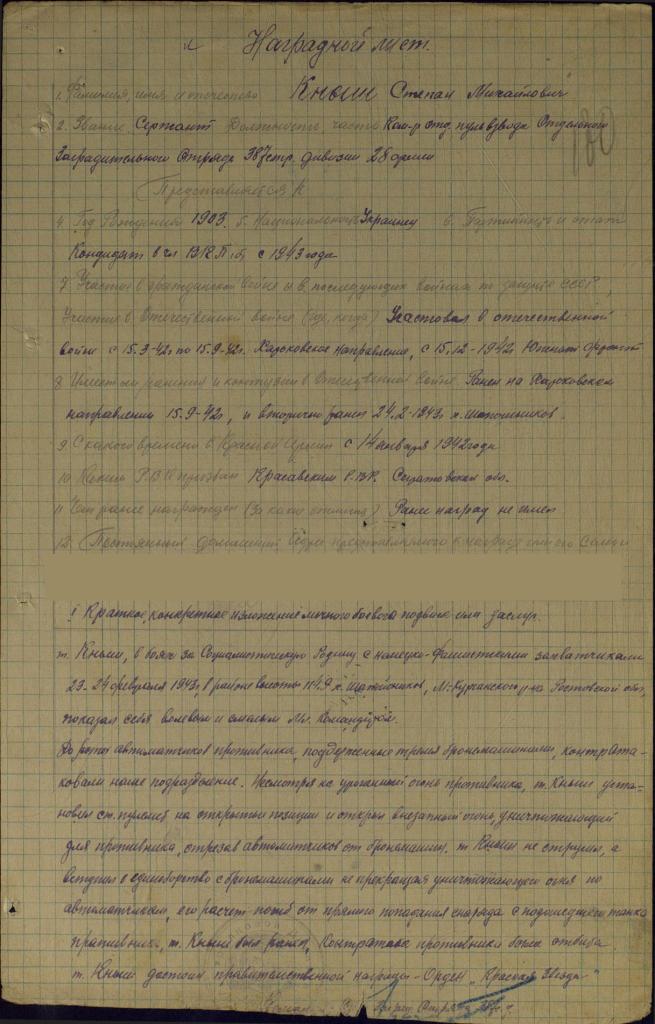 Наградной лист.
1. Фамилия, имя и отчество Кныш Степан Михайлович
2. Звание Сержант Должность, часть Ком-р отд. пульвзвода Отдельного
Заградительного Отряда 387 стр. дивизии 28 армии
Представляется к
4. Год Рождения 1903. 5. Национальность Украинец 6. Партийность и стаж
Кандидат в чл ВКП(б) с 1943 года
7. Участие в гражданской войне и в последующих войнах по защите СССР,
Участие в Отечественной войне (где, когда) Участвовал в отечественной
войне с 15.3-42г по 15.9-42г. Харьковское направление, с 15.12-1942 Южный фронт
8. Имеет ли ранения и контузии в Отечественной войне. Ранен на Харьковском
направлении 15.9-42г, и вторично ранен 24.2-1943г х. Шапошников.
9. С какого времени в Красной Армии с 14 января 1942 года
10. Каким РВК призван Красавским Р.В.К. Саратовская обл.
11. Чем ранее награжден (За какие отличия) Ранее наград не имел
12. Постоянный домашний адрес представляемого к награде его семьи
I Краткое, конкретное изложение личного боевого подвига или заслуг.
т. Кныш, в боях за Социалистическую Родину с немецко-фашистскими захватчиками
23-24 февраля 1943г, в районе высоты 114.9 х. Шапошников, М-Курганского р-на Ростовской обл,
показал себя волевым и смелым Мл. Командиром.
До роты автоматчиков противника, поддержанные тремя бронемашинами, контрата-
ковали наше подразделение. Несмотря на ураганный огонь противника, т. Кныш уста-
новил ст. пулемет на открытой позиции и открыл внезапный огонь, уничтожающий
для противника, отрезав автоматчиков от бронемашин. т. Кныш не струсил, а
вступил в единоборство с бронемашинами не прекращая уничтожающего огня по
автоматчикам, его расчет погиб от прямого попадания снаряда с подошедшего танка
противника, т. Кныш был ранен, Контратака противника была отбита.
т. Кныш достоин правительственной награды - Орден „Красная Звезда"